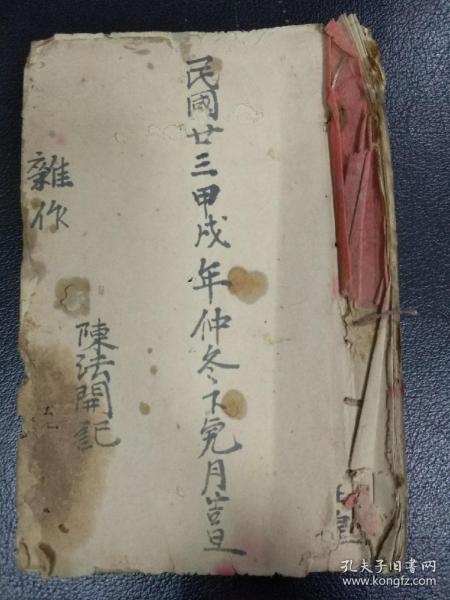 民國廿三甲戌年仲冬下完月吉旦
雜作
陳法開記
孔夫子旧书网
www.kongfz.com